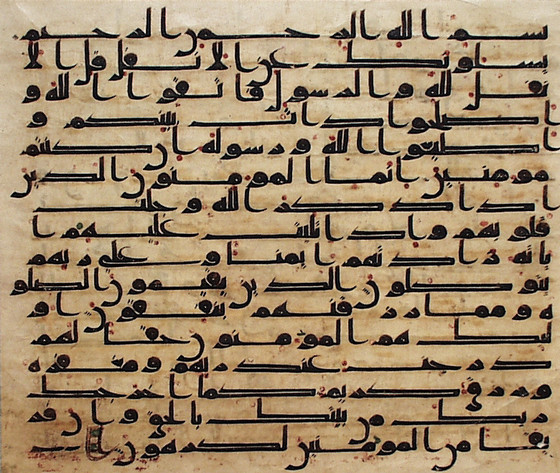 بسم الله الرحمن الرحيم
يسلونك عن الانفال قل الا
نفال لله والرسول فاتقوا الله و
اصلحوا ذات بينكم و
اطيعوا الله ورسوله ان كنتم
مومنين انما المومنون الذين
اذا ذكر الله وجلت
قلوبهم واذا تليت عليهم ا
يته زادتهم ايمنا وعلى ربهم
يتوكلون الذين يقيمون الصلو
ه ومما رزقنهم ينفقون او
لئك هم المومنون حقا لهم
درجت عند ربهم ومغفره
ورزق كريم كما اخرجك
ربك من بيتك بالحق وان فر
يقا من المومنين لكرهون